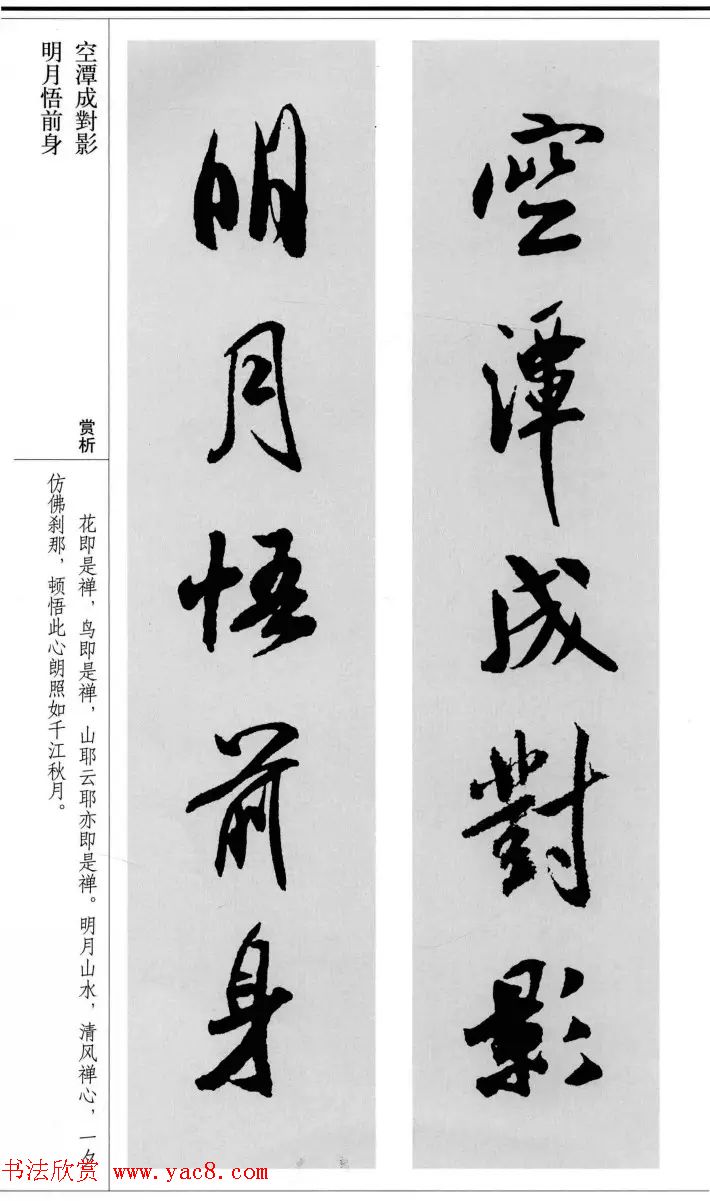 空潭成對影
明月悟前身
空潭成對影
明月悟前身
赏析
花即是禅，鸟即是禅，山耶云耶亦即是禅。明月山水，清风禅心，一夕
仿佛刹那，顿悟此心朗照如千江秋月。
书法欣赏 www.yac8.com